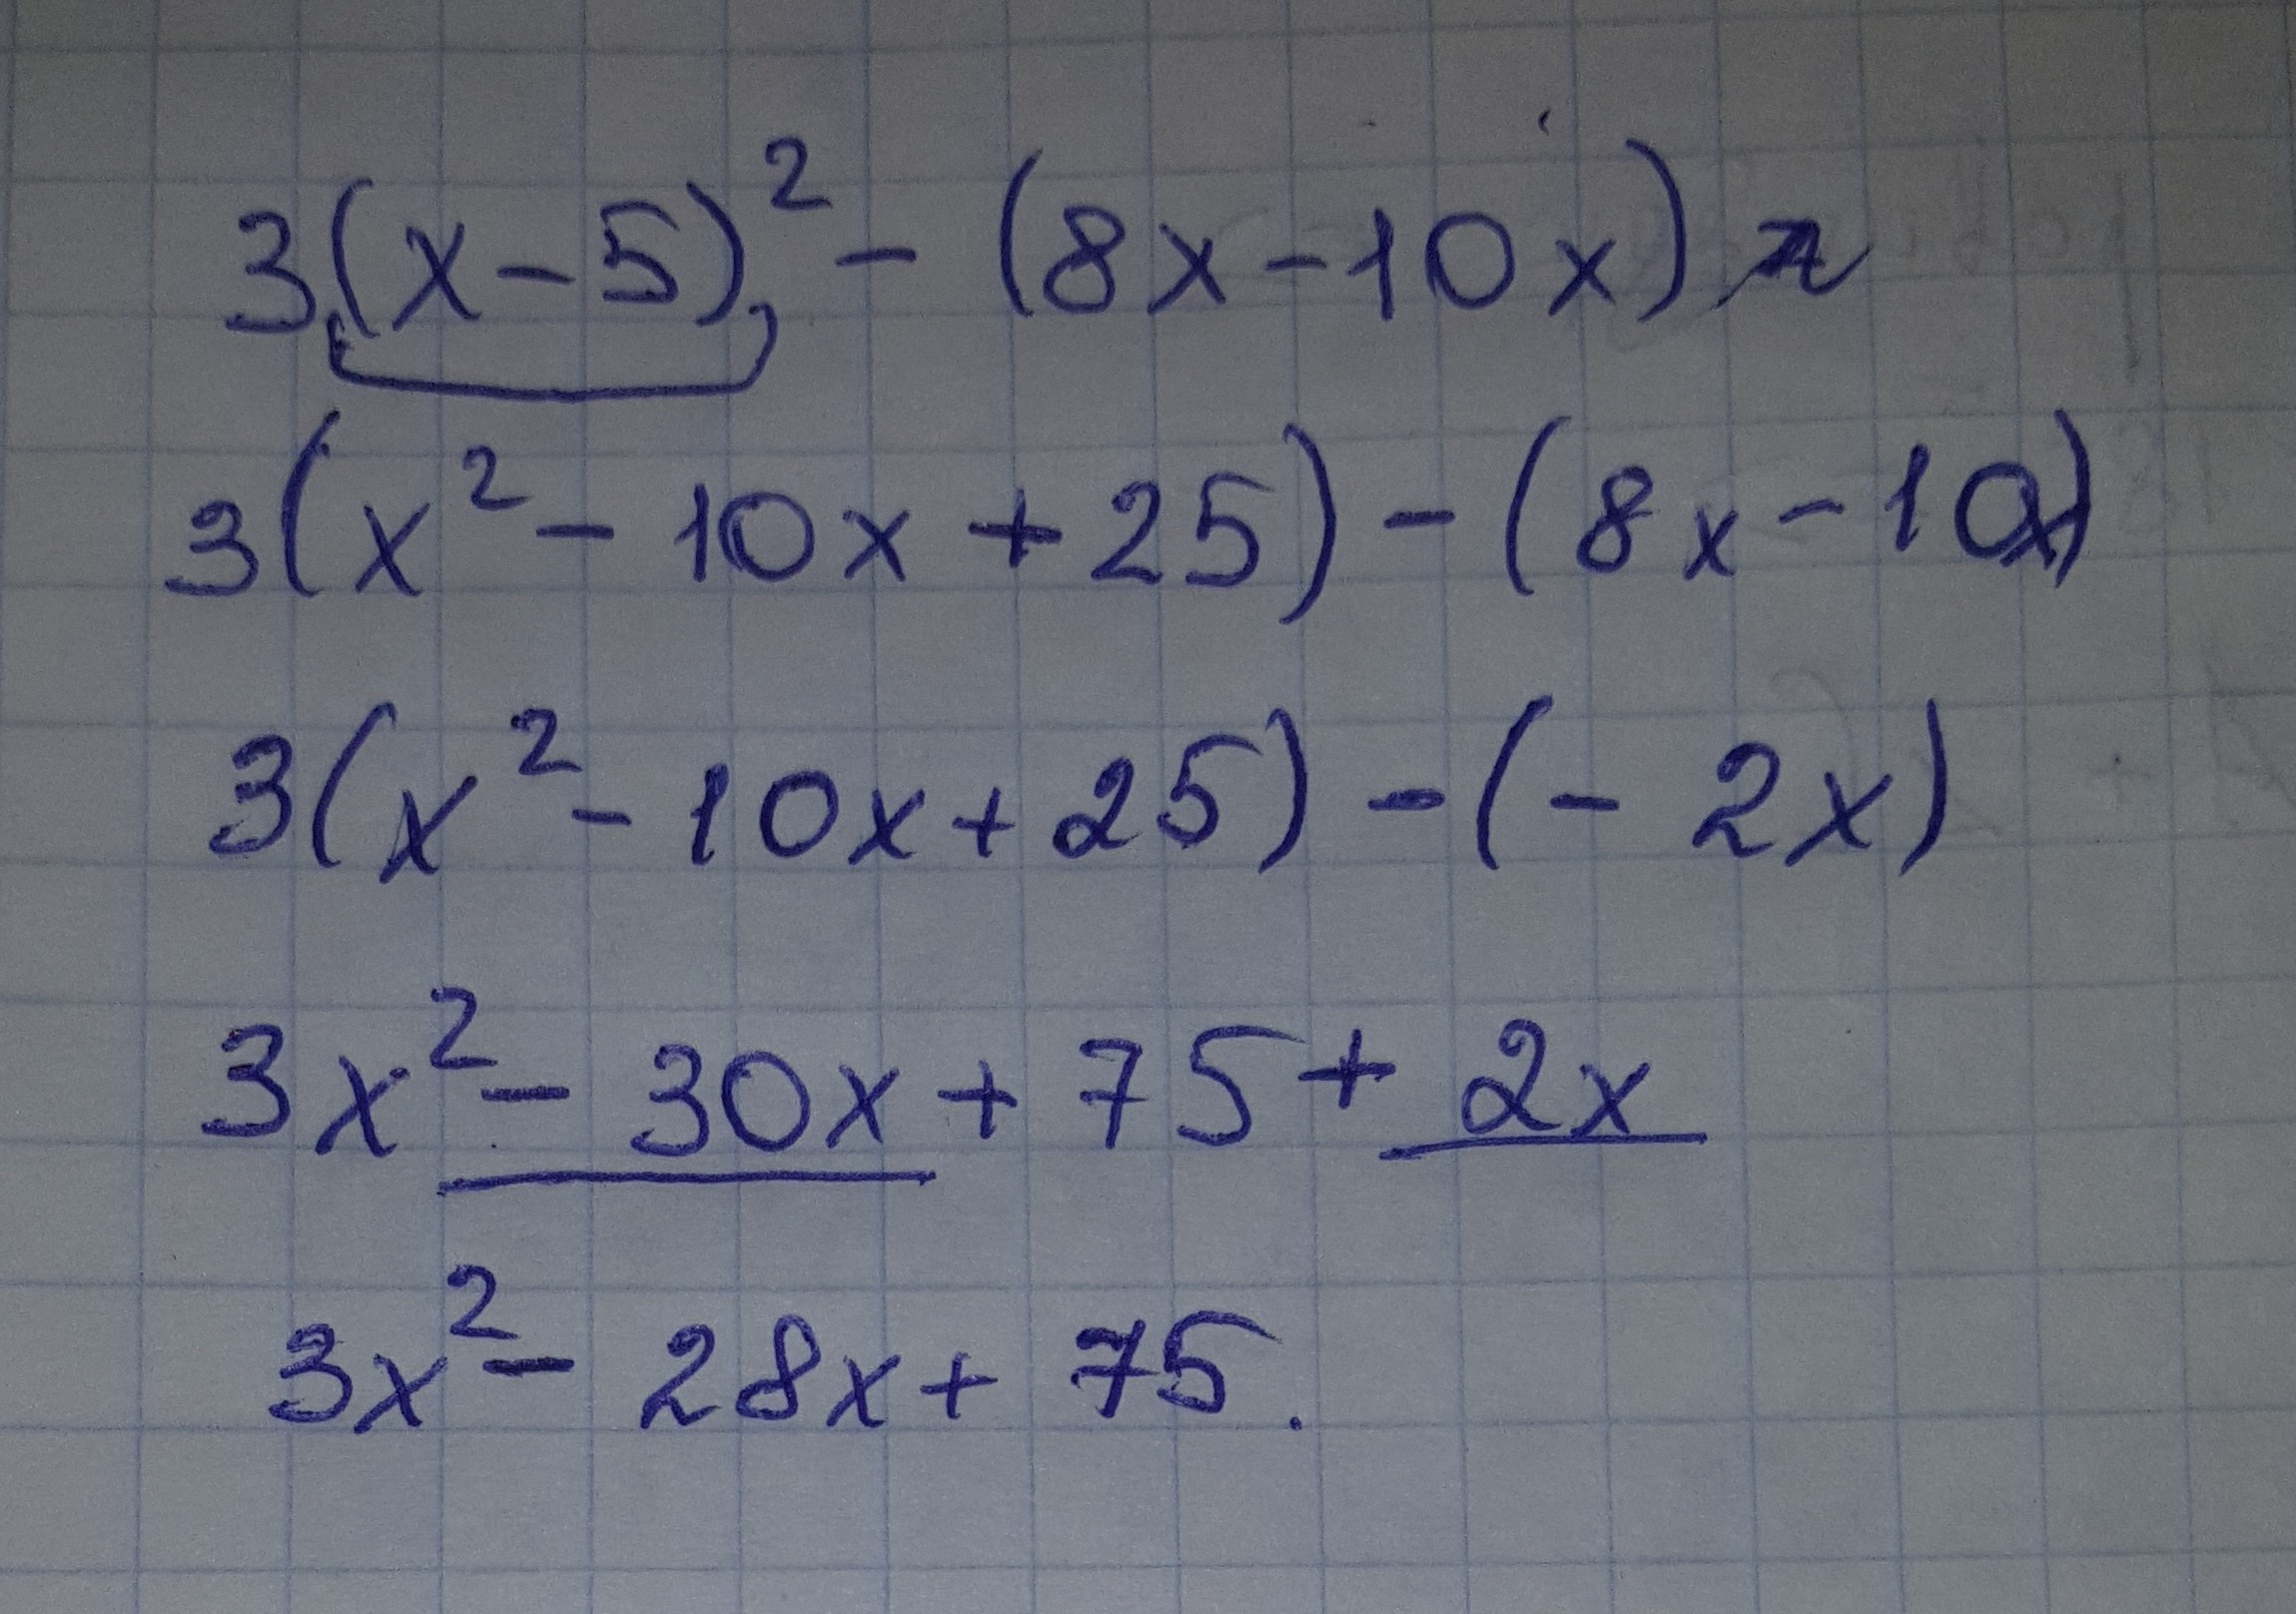 3(x-5)² - (8x-10x)
3(x² - 10x + 25) - (8x - 10x)
3(x² - 10x + 25) - (- 2x)
3x² - 30x + 75 + 2x
3x² - 28x + 75.